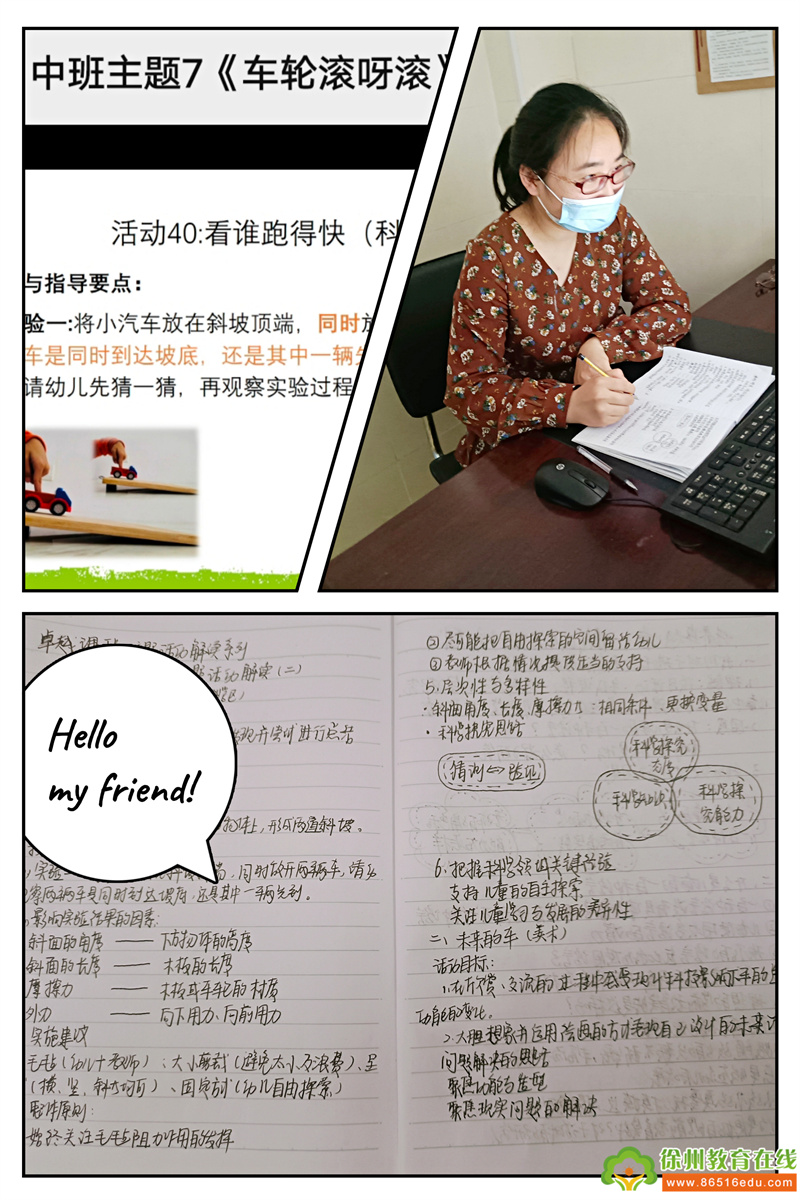 中班主题7《车轮滚呀滚》
活动40:看谁跑得快（科
与指导要点：
验一:将小汽车放在斜坡顶端，同时
车是同时到达坡底，还是其中一辆
请幼儿先猜一猜，再观察实验过程
Hello
my friend!
活动解读（二）
进行点岩
形成两道斜坡。
同时放开两辆车，请幼
察两辆车是同时到达坡底，还是其中一辆先到。
影响实验结果的因素：
斜面的角度 —— 下方物体的高度
斜面的长度 —— 木板的长度
摩擦力 —— 木板和车轮的材质
外力 —— 向下用力、向前用力
实施建议
毛毡（幼儿+教师）：大小剪裁（避免太小及浪费）、呈
（横、竖、斜均可）、固定方式（幼儿自由探索）
原则：
始终关注毛毡阻力作用的发挥
①尽可能把自由探索的空间留给幼儿
②教师根据情况提供适当的支持
5.层次性与多样性
·斜面角度、长度、摩擦力：相同条件、更换变量
·科学探究思路
猜测⇔验证
科学探究
态度
科学知识
科学探
究能力
6.把握科学领域关键经验
支持儿童的自主探索
关注儿童学习与发展的差异性
二、未来的车（美术）
活动目标：
1.在欣赏、交流的过程中感受
功能的变化。
2.大胆想象并运用绘画的方式表现自己设计的未来
问题解决的思路
聚焦功能与造型
聚焦现实问题的解决
徐州教育在线
www.86516edu.com